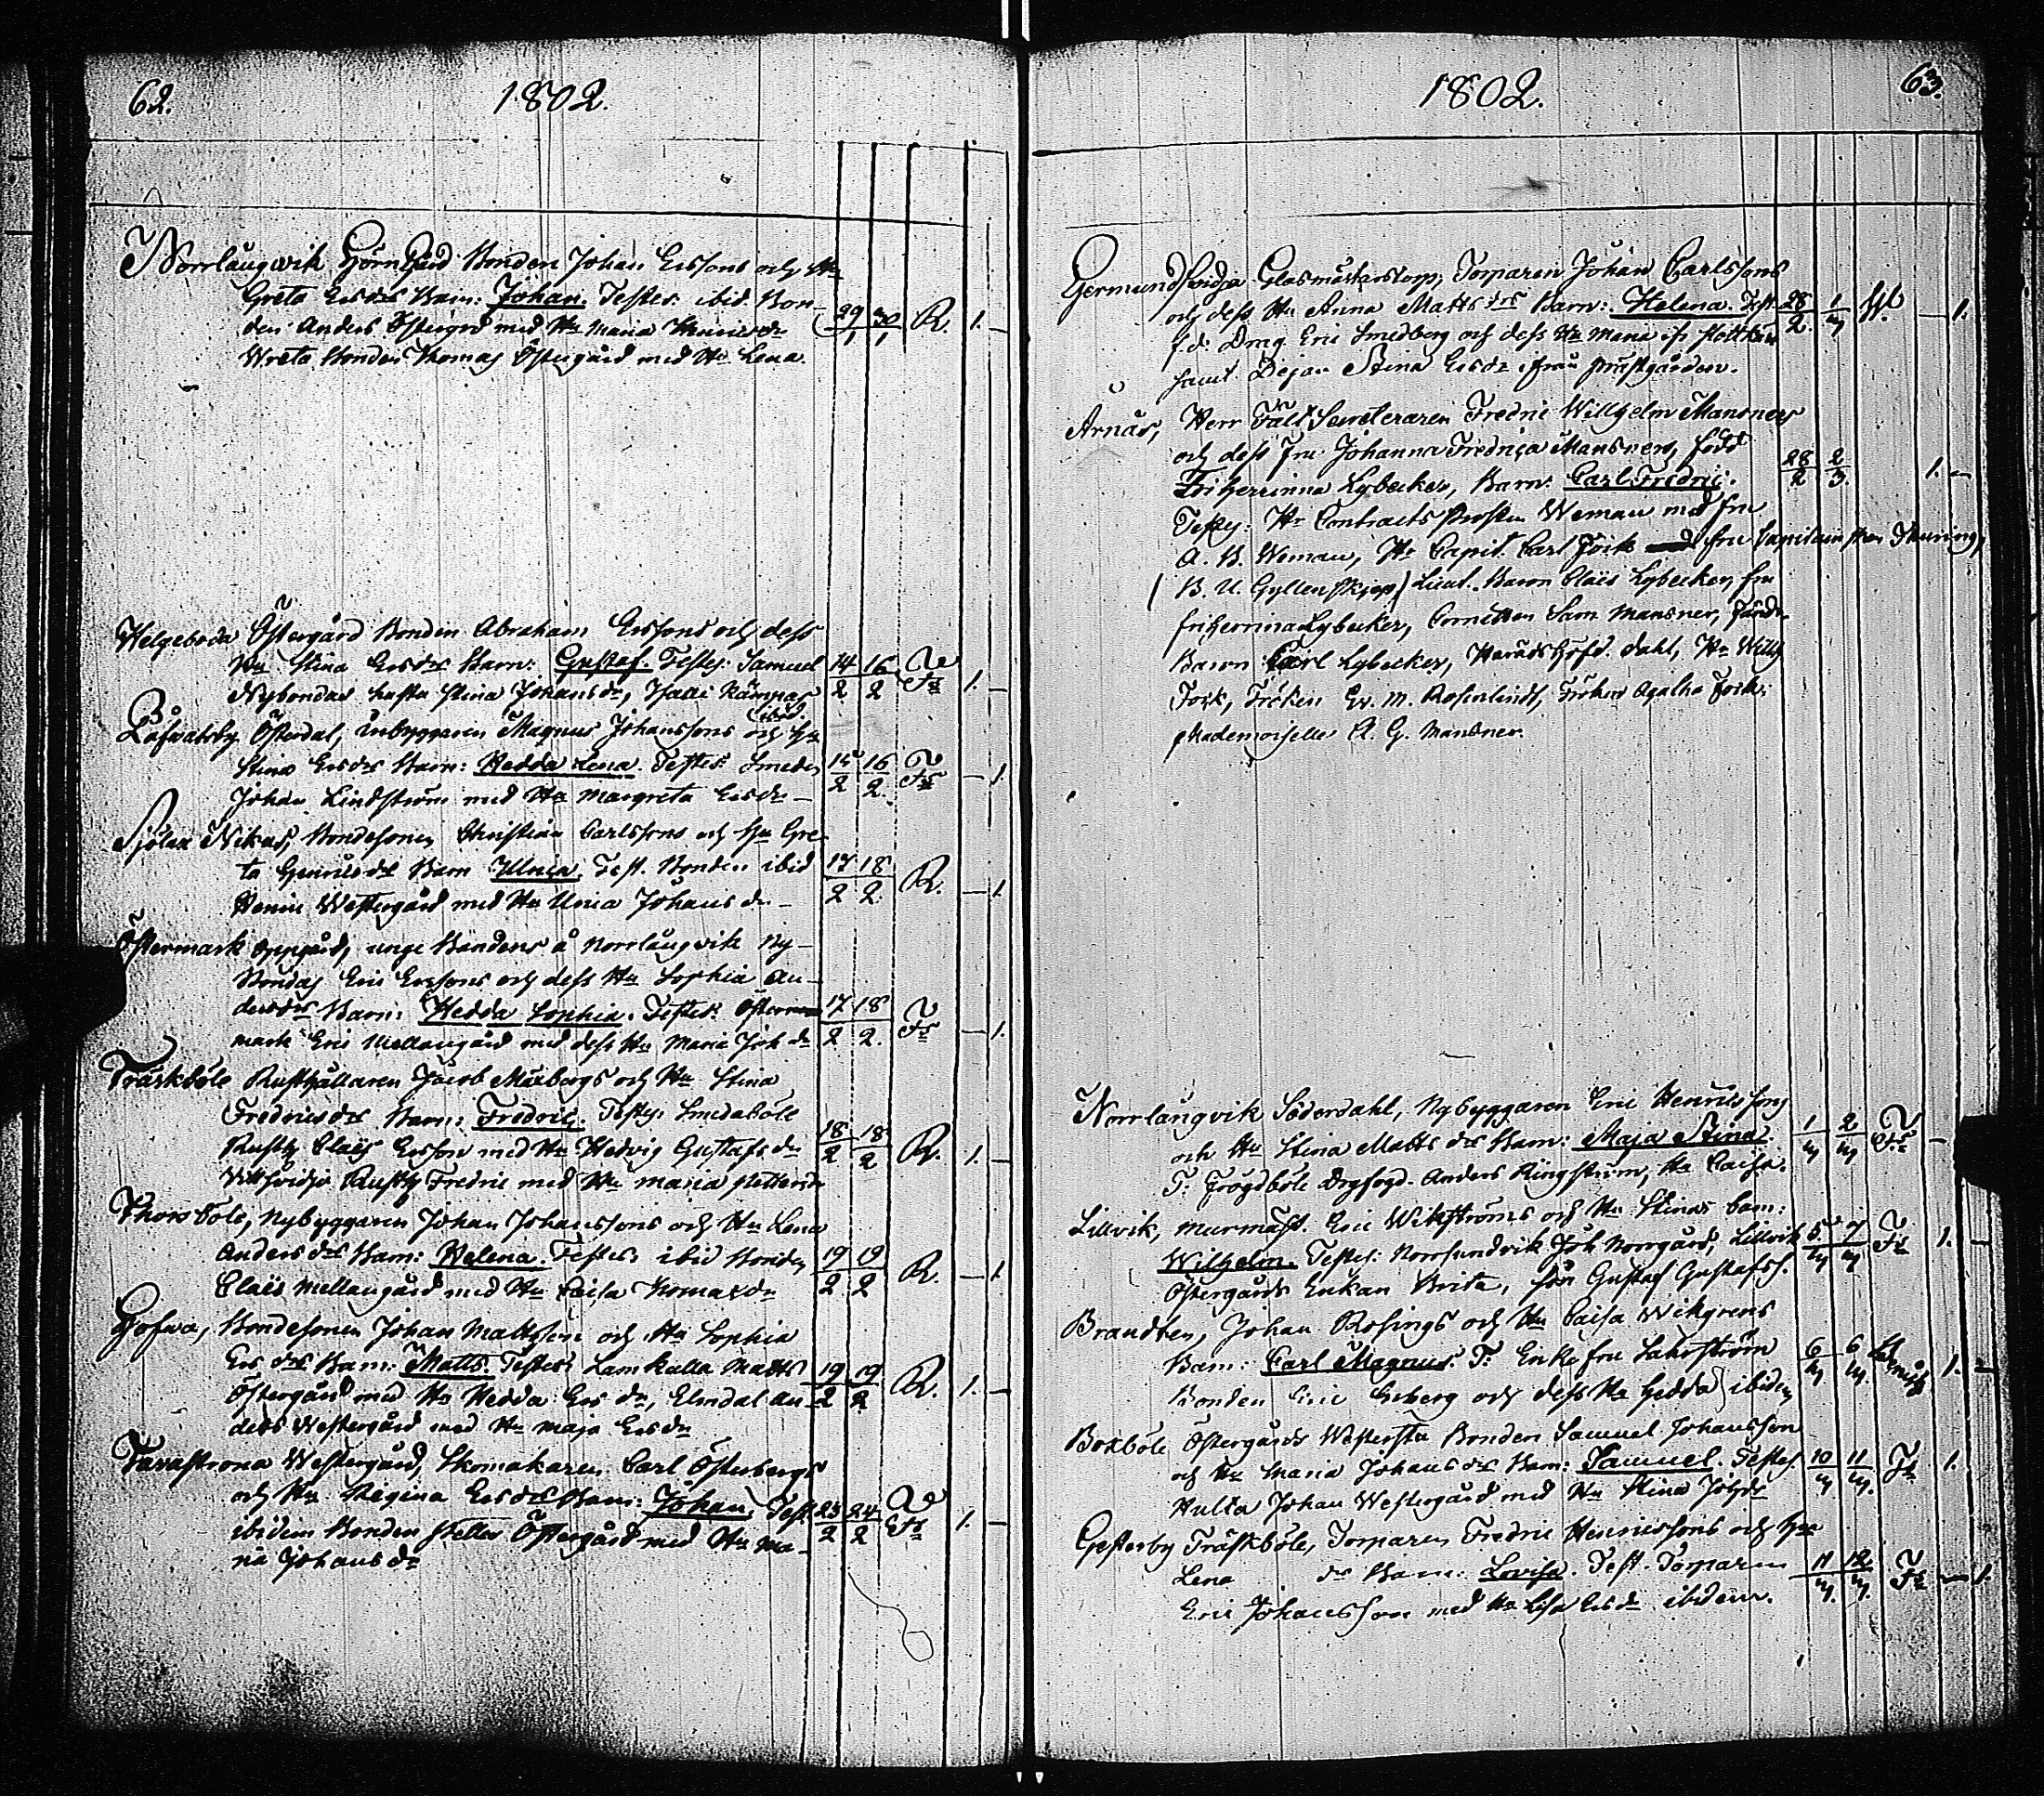 62. 1802.
Norrlångwik Hörngård Bonden Johan Erssons och Hu
Greta Ersdrs Barn: Johan. Testes: ibid. Bon-
den Anders Östergrd med Hu Maria 29/1 30/1 R. 1. –
Wreta Bonden Thomas Östergård med Hu Lena.
Helgeboda Östergård Bonden Abraham Erssons och dess
Hu Stina Ersdrs Barn: Gustaf. Testes: Samuel 14/2 16/2 1. –
Nybondas hustru Stina Johansdr, Isaac Kämpas
ibid.
Låfvatsby Österdal, Inbyggaren Magnus Johanssons och Hu
Stina Ersdrs Barn: Hedda Lena. Testes: Smeden 15/2 16/2 – 1.
Johan Lindström med Hu Margreta Ersdr –
Sjölax Nikus, Bondesonen Christian Carlssons och Hu Gre-
ta Henricsdrs Barn Ulrica. Test. Bonden ibid 17/2 18/2 R. – 1.
Henric Westergård med Hu Ulrica Johansdr –
Östermark Oppgård, unge Bondens å Norrlångwik Ny-
Bondas Eric Erssons och dess Hu Sophia An-
dersdrs Barn: Hedda Sophia. Testes: Öster- 17/2 18/2 – 1.
mark Eric Mellangård med dess Hu Maria Joh dr
Träskböle Rusthållaren Jacob Maxbergs och Hu Stina
Fredricsdrs Barn: Fredric. Testes: Smedaböle
Rusth. Claës Ersson med Hu Hedvig Gustafsdr 18/2 18/2 R. 1. –
Wiksvidja Rusth. Fredric med Hu Maria Pettersdr
Thorsböle, Nybyggaren Johan Johanssons och Hu Lena
Andersdrs Barn: Helena. Testes: ibid Bonden 19/2 19/2 R. – 1
Claës Mellangård med Hu Caisa Thomasdr
Gofwa, Bondesonen Johan Mattssons och Hu Sophia
Ersdrs Barn: Matts. Testes: Lamkulla Matts 19/2 19/2 R. 1. –
Östergård med Hu Hedda Ersdr, Elmdal An-
ders Westergård med Hu Maja Ersdr
Tavastrona Westergård, Skomakaren Carl Österbergs
och Hu Regina Ersdrs Barn: Johan. Test. 23/2 24/2 1. –
ibidem Bonden Petter Östergård med Hu Ma-
ria Johansdr
1802. 63.
Germundsvidja Glasmästarstorp, Torparen Johan Carlssons
och dess Hu Anna Mattsdrs Barn: Helena. Test. 28/2. – 1.
f.d. Drng Eric Smedberg och dess Hu Maria
samt Pigan Stina Ersdr ifrån prästgården.
Arnäs, Herr Fält Secreteraren Fredric Willhelm Mansners
och dess fru Johanna Fredrica Mansners, född
Friherrinna Lybecker, Barn: Carl Fredric. 28/2 2/3. 1. –
Testes: Hr Contracts Prosten Weman med fru
A. B. Weman, Hr Capit. Carl Fock fru Capitainskan Thuring,
/ B. U. Gyllenskjep / Lieut. Baron Claës Lybecker, fru
friherrinna Lybecker, Cornetten Sam Mansner, Fändr.
Baron Carl Lybecker, Häradshöfd. Dahl, Hr Willh
Fock, Fröken Ev. M. Rosenlindt, Fröken Agatha Fock,
Mademoiselle A. G. Mansner.
Norrlångvik Söderdahl, Nybyggaren Eric Henricssons
och Hu Stina Mattsdrs Barn: Maja Stina. 1 2 –
T: Frögdböle Drgfogd. Anders Ringström, Hu Caisa.
Lillvik, Murmäst. Eric Wikströms och Hu Stinas barn:
Wilhelm. Testes: Norrsundvik Joh Norrgård, Lillvik 5 7 1. –
Östergårds Enkan Brita, Son Gustaf Gustafss.
Brandten, Johan Rosings och Hu Caisa Wikgrens
Barn: Carl Magnus. T: Enke fru Lahrström 6 6 1. –
Bonden Eric Enberg och dess Hu Hedda ibidem
Boxböle Östergårds Westersta Bonden Samuel Johansson
och Hu Maria Johansdrs Barn: Samuel. Testes 10 11 1.
Hulta Johan Westergård med Hu Stina Johsdr
Gesterby Träskböle, Torparen Fredric Henricssons och Hu
Lena drs Barn: Lovisa. Test. Torparen 11 12 – 1.
Eric Johansson med Hu Lisa Ersdr ibidem.